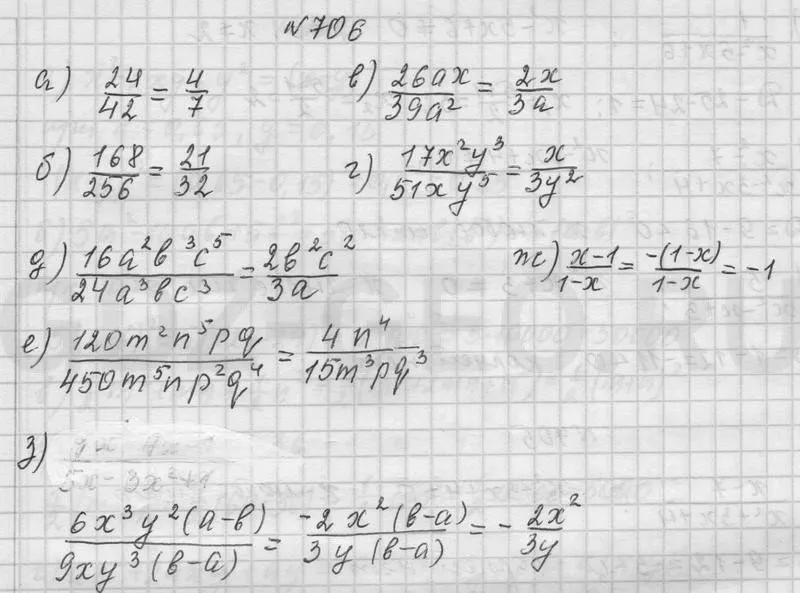 №706
а) 24/42 = 4/7   в) 26ax/39a² = 2x/3a
б) 168/256 = 21/32   г) 17x²y³/51xy⁵ = x/3y²
д) 16a²b³c⁵/24a³bc³ = 2b²c²/3a   ж) x-1/1-x = -(1-x)/1-x = -1
е) 120m²n⁵pq/450m⁵np²q⁴ = 4n⁴/15m³pq³
з)
6x³y²(a-b)/9xy³(b-a) = -2x²(b-a)/3y(b-a) = - 2x²/3y